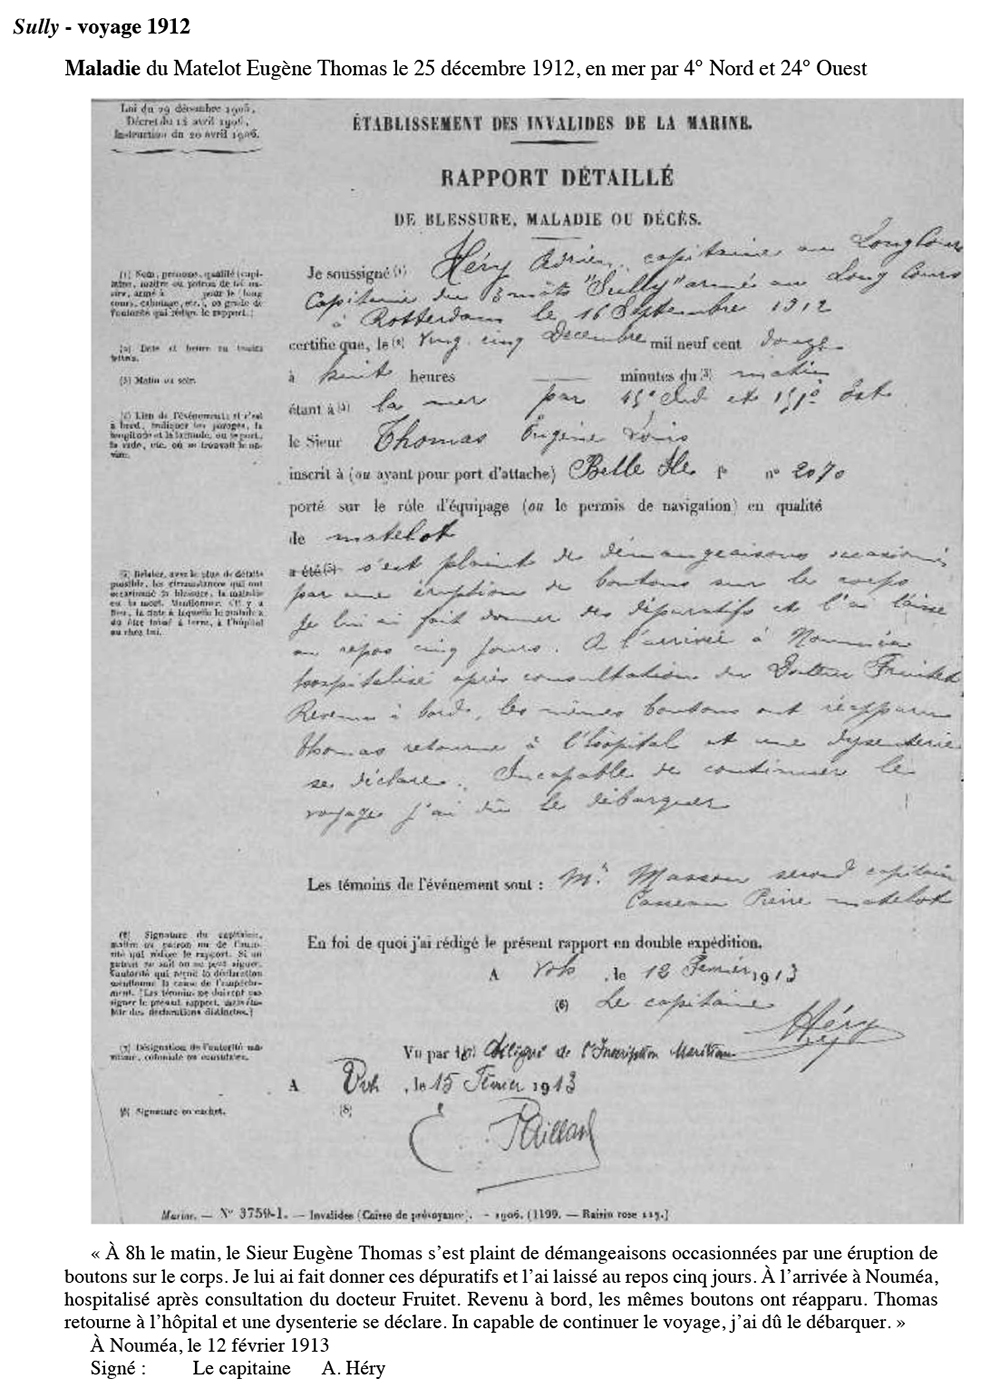 Sully - voyage 1912
Maladie du Matelot Eugène Thomas le 25 décembre 1912, en mer par 4° Nord et 24° Ouest
Loi du 29 décembre 1905,
Décret du 14 avril 1906,
Instruction du 20 avril 1906.
ÉTABLISSEMENT DES INVALIDES DE LA MARINE.
RAPPORT DÉTAILLÉ
DE BLESSURE, MALADIE OU DÉCÈS.
(1) Nom, prénoms, qualité (capitaine, maître ou patron
armé à pour le (long
cours, cabotage, etc.), ou grade de
l'autorité qui rédige le rapport.)
Je soussigné (1) Héry Adrien, capitaine au Long Cours
Capitaine du 3 mâts "Sully" armé au Long Cours
à Rotterdam le 16 Septembre 1912
(2) Date et heure en toutes
lettres.
certifie que, le (2) Vingt cinq Décembre mil neuf cent douze
(3) Matin ou soir.
à huit heures minutes du (3) matin
(4) Lieu de l'événement; si c'est
à bord, indiquer les parages, la
longitude et la latitude, ou le port,
la rade, etc. où se trouvait le navire.
étant à (4) la mer par 45° Sud et 151° Est
le Sieur Thomas Eugène Louis
inscrit à (ou ayant pour port d'attache) Belle Ile f° n° 2070
porté sur le rôle d'équipage (ou le permis de navigation) en qualité
de matelot
(5) Relater, avec le plus de détails
possible, les circonstances qui ont
occasionné la blessure, la maladie
ou la mort. Mentionner, s'il y a
lieu, la date à laquelle le malade a
dû être laissé à terre, à l'hôpital
ou chez lui.
a été (5) s'est plaint de démangeaisons occasionnés
par une éruption de boutons sur le corps
Je lui ai fait donner des dépuratifs et l'ai laissé
au repos cinq jours. A l'arrivée à Nouméa
hospitalisé après consultation du Docteur Fruitet.
Revenu à bord, les mêmes boutons ont réapparu
Thomas retourne à l'hôpital et une dysenterie
se déclare. Incapable de continuer le
voyage j'ai dû le débarquer
Les témoins de l'événement sont : Mr Masson second capitaine
Pierre matelot
(6) Signature du capitaine,
maître ou patron ou de l'autorité
qui rédige le rapport. Si un
patron ne sait ou ne peut signer,
l'autorité qui reçoit la déclaration
mentionne la cause de l'empêchement.
(Les témoins ne doivent pas
signer le présent rapport, mais établir
des déclarations distinctes.)
En foi de quoi j'ai rédigé le présent rapport en double expédition.
A , le 12 Février 1913
(6) Le capitaine
Héry
(7) Désignation de l'autorité maritime,
coloniale ou consulaire.
Vu par Délégué de l'Inscription Maritime
A , le 15 Février 1913
(8) Signature ou cachet.
(8)
Marine. — N° 3759-1. — Invalides (Caisse de prévoyance). - 1906. (1199. — Raisin rose 115.)
« À 8h le matin, le Sieur Eugène Thomas s’est plaint de démangeaisons occasionnées par une éruption de
boutons sur le corps. Je lui ai fait donner ces dépuratifs et l’ai laissé au repos cinq jours. À l’arrivée à Nouméa,
hospitalisé après consultation du docteur Fruitet. Revenu à bord, les mêmes boutons ont réapparu. Thomas
retourne à l’hôpital et une dysenterie se déclare. In capable de continuer le voyage, j’ai dû le débarquer. »
À Nouméa, le 12 février 1913
Signé : Le capitaine A. Héry